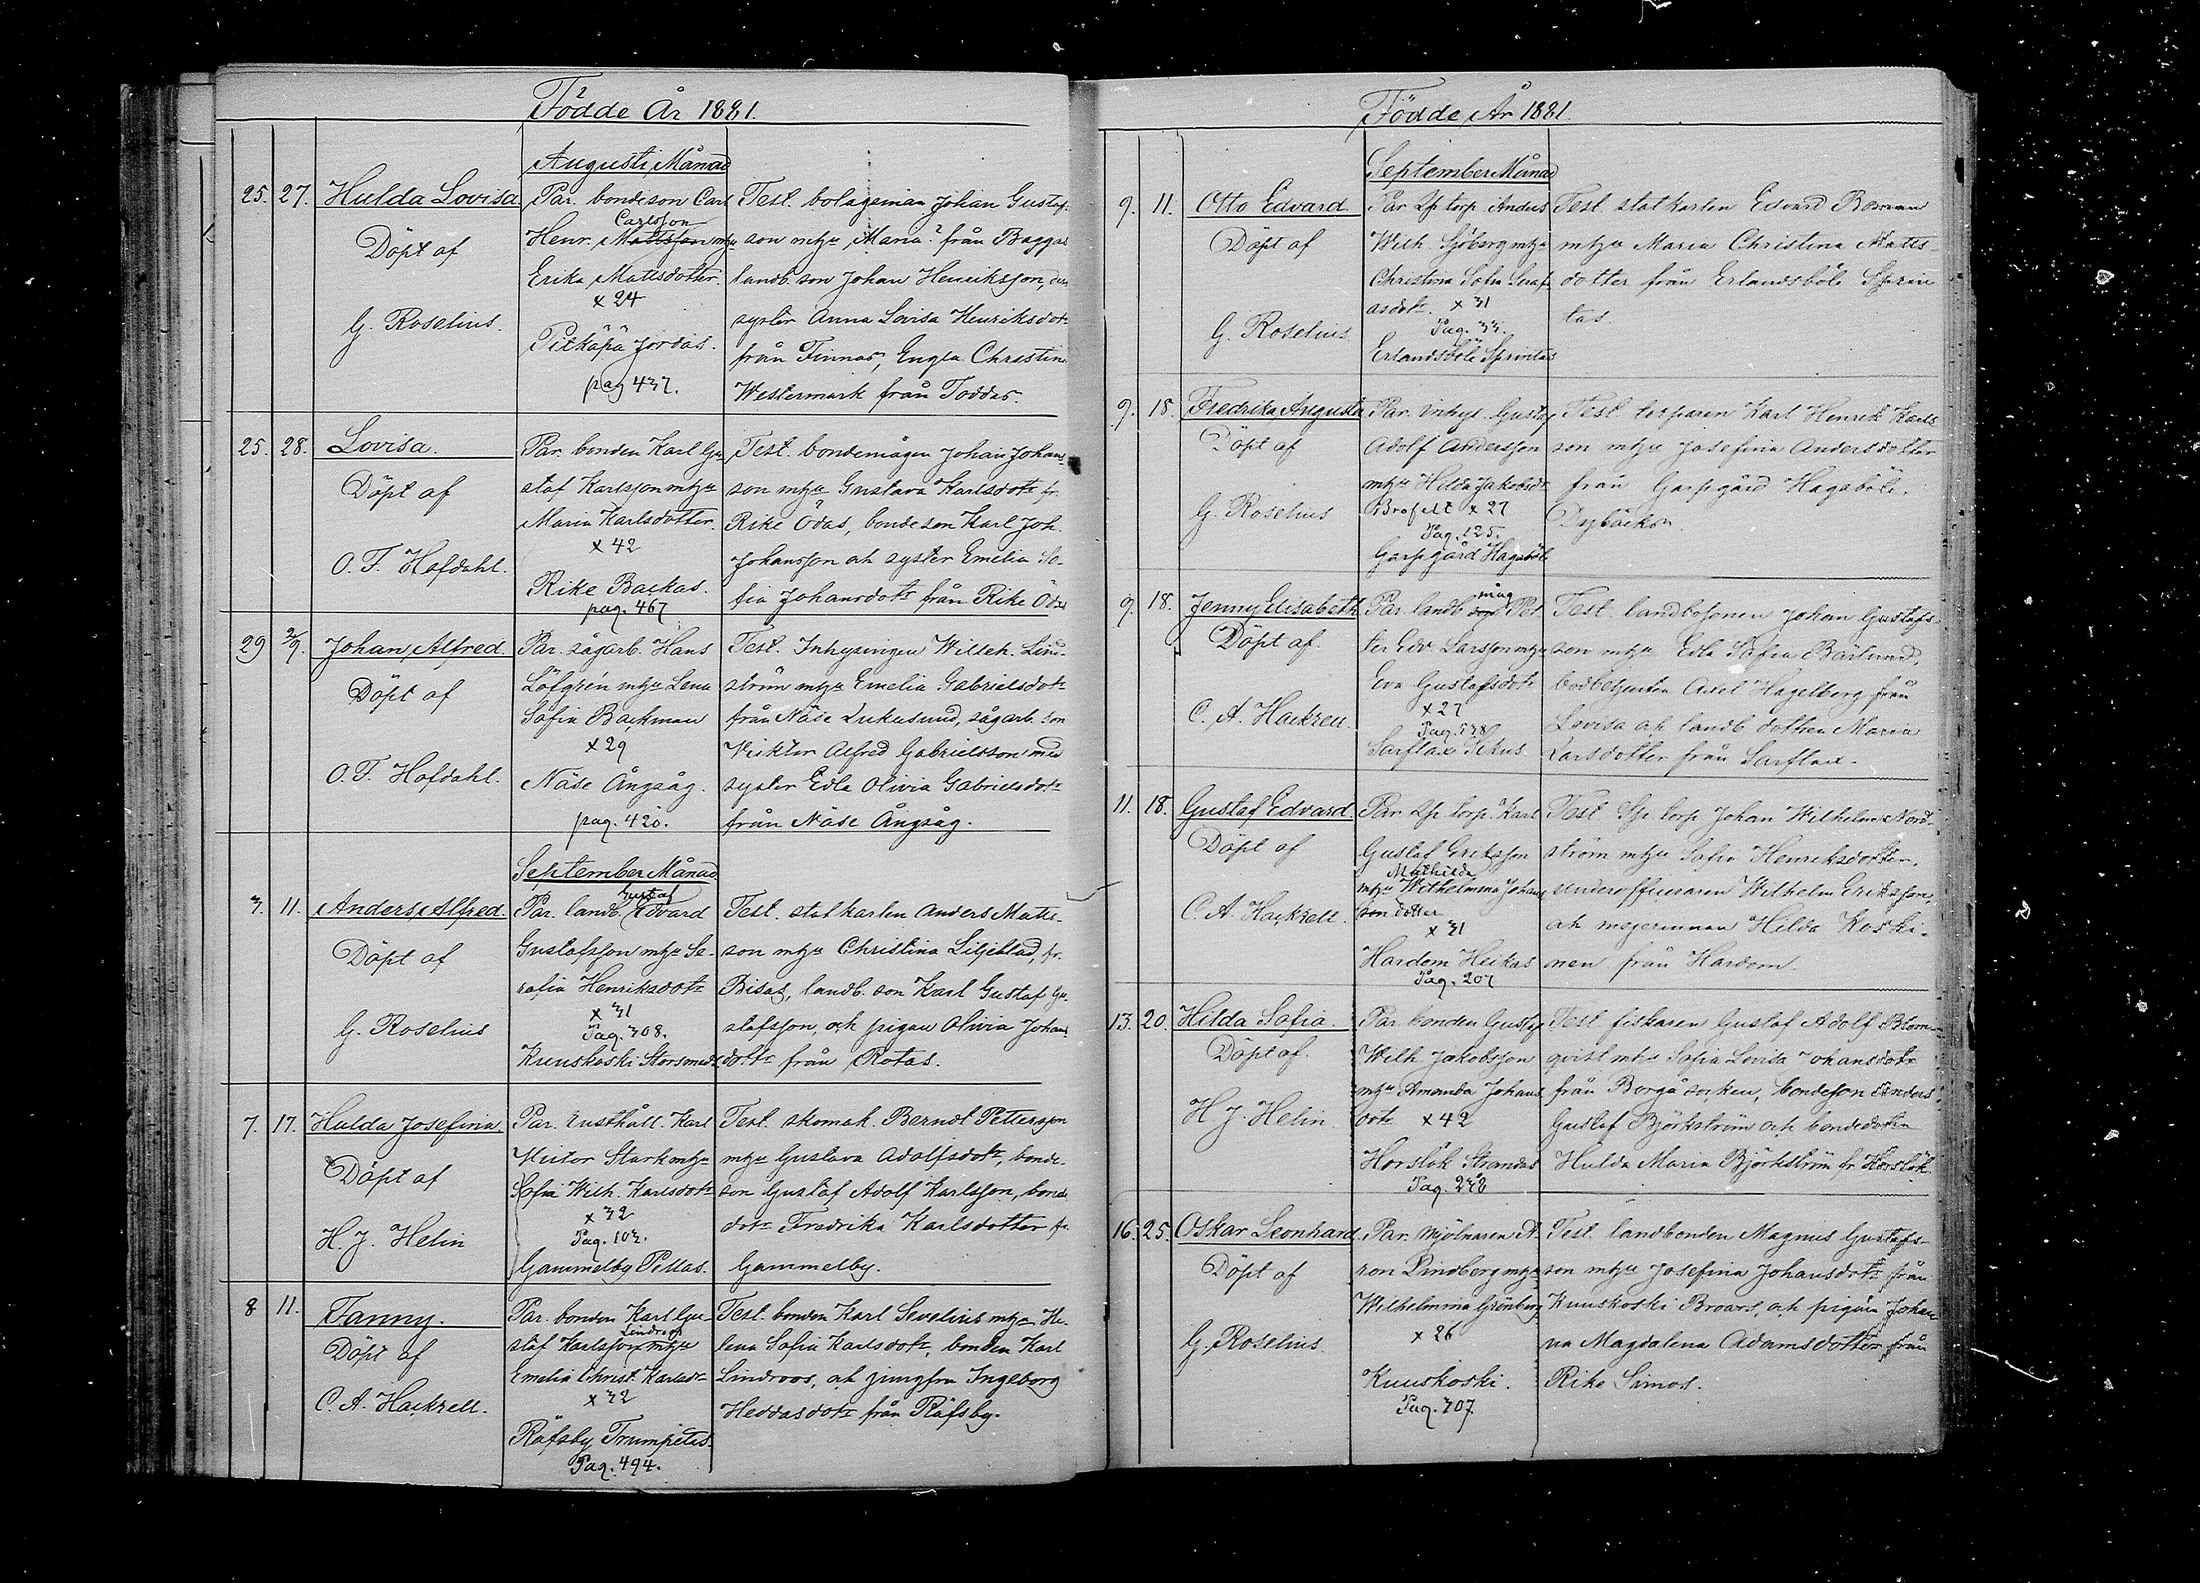 Födde År 1881.
Augusti Månad
25. 27. Hulda Lovisa
Döpt af
G. Roselius.
Par. bondeson Carl
Carlsson
Henr. Mattsson mh
Erika Mattsdotter.
x 24
Pitkäpä Jordas.
pag 437.
Test. bolagsman Johan Gustaf-
son mh Maria? från Baggas
landb. son Johan Henriksson, dess
syster Anna Lovisa Henriksdotr
från Finnas, Engla Christina
Westermark från Toddas.
25. 28. Lovisa.
Döpt af
O. T. Hofdahl.
Par. bonden Karl Gu-
staf Karlsson mh
Maria Karlsdotter
x 42
Rike Backas.
pag. 467
Test. bondemågen Johan Johans-
son mh Gustava Karlsdotr fr.
Rike Ödas, bondeson Karl Joh.
Johansson och syster Emelia So-
fia Johansdotr från Rike Ödas
29 2/9. Johan Alfred.
Döpt af
O. T. Hofdahl.
Par. sågarb. Hans
Löfgrén mh Lena
Sofia Backman
x 29
Näse Ångsåg.
pag. 420.
Test. Inhysingen Willeh. Lind-
ström mh Emelia Gabrielsdotr
från Näse Lukusund, sågarb. son
Vicktor Alfred Gabrielsson med
syster Edla Olivia Gabrielsdotr
från Näse Ångsåg.
September Månad
3. 11. Anders Alfred.
Döpt af
G. Roselius
Gustaf
Par. landb. Edvard
Gustafsson mh Se-
rafia Henriksdotr
x 31
Pag. 308.
Kuuskoski Storsmeds
Test. statkarlen Anders Matts-
son mh Christina Liljeblad, fr.
Bisas, landb. son Karl Gustaf Gu-
stafsson, och pigan Olivia Johans-
dotr från Rotas.
7. 17. Hulda Josefina.
Döpt af
H. J. Helin
Par. Rusthåll. Karl
Victor Stark mh
Sofia Wilh. Karlsdotr
x 32
Pag. 103.
Gammelby Pellas.
Test. skomak. Berndt Pettersson
mh Gustava Adolfsdotr, bonde-
son Gustaf Adolf Karlsson, bond
dotr Fredrika Karlsdotter fr.
Gammelby.
8 11. Fanny.
Döpt af
C. A. Hackzell.
Par. bonden Karl Gu-
Lindroos
staf Karlsson mh
Emelia Christ. Karlsdr
x 32
Räfsby Trumpetas.
Pag. 494.
Test. bonden Karl Sevelius mh He-
lena Sofia Karlsdotr, bonden Karl
Lindroos, och jungfru Ingeborg
Heddasdotr från Räfsby.
Födde År 1881.
September Månad
9. 11. Otto Edvard.
Döpt af
G. Roselius
Par. Lp torp. Anders
Wilh. Sjöberg mh
Christina Sofia Seraf-
asdotr. x 31
Pag. 33.
Erlandsböle Sprintas
Test. statkarlen Edvard Boman
mh Maria Christina Matts-
dotter från Erlandsböle Sprin
tas
9. 18. Fredrika Augusta
Döpt af
G. Roselius
Par. Inhys. Gustaf
Adolf Andersson
mh Hilda Jakobsdr
Brofelt x 27
Pag. 125.
Garpgård Hagaböle
Test torparen Karl Henrik Karls
son mh Josefina Andersdotter
från Garpgård Hagaböle.
Dybäckon.
9. 18. Jenny Elisabeth
Döpt af.
C. A. Hackzell.
måg
Par. landb son Pet-
ter Edv Larsson mh
Eva Gustafsdotr
x 27
Pag. 538
Sarflax Pekus.
Test. landbosonen Johan Gustafs-
son mh Edla Sofia Bärlund,
bodbetjenten Axel Hagelberg från
Lovisa och landb dottren Maria
Larsdotter från Sarflax.
11. 18. Gustaf Edvard.
Döpt af
C. A. Hackzell.
Par. Lp torp. Karl
Gustaf Eriksson
Mathilda
mh Wilhelmina Johans
son dotter
x 31
Hardom Heikas
Pag. 207
Test Lp torp Johan Wilhelm Nord-
ström mh Sofia Henriksdotter,
underofficeraren Wilhelm Eriksson,
och mejerinnan Hilda Koski-
nen från Hardom.
13. 20. Hilda Sofia.
Döpt af.
H. J. Helin.
Par. bonden Gustaf
Wilh. Jakobsson
mh Amanda Johans
dotr x 42
Horslök Strandas
Pag. 238
Test fiskaren Gustaf Adolf Blom-
qvist mh Sofia Lovisa Johansdotr
från Borgå socken, bondeson Anders
Gustaf Björkström och bondedottr
Hulda Maria Björkström fr. Horslök.
16. 25. Oskar Leonhard.
Döpt af
G. Roselius.
Par. Mjölnaren A-
ron Lindberg mh
Wilhelmina Grönberg
x 26
Kuuskoski.
Pag. 307.
Test. landbonden Magnus Gustafs-
son mh Josefina Johansdotr från
Kuuskoski Broars, och pigan Johan
na Magdalena Adamsdotter från
Rike Simos.